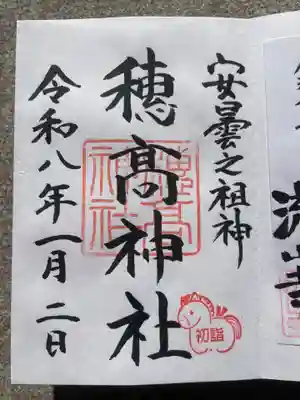 安曇之祖神
穂高神社
穂高神社
初詣
令和八年一月二日